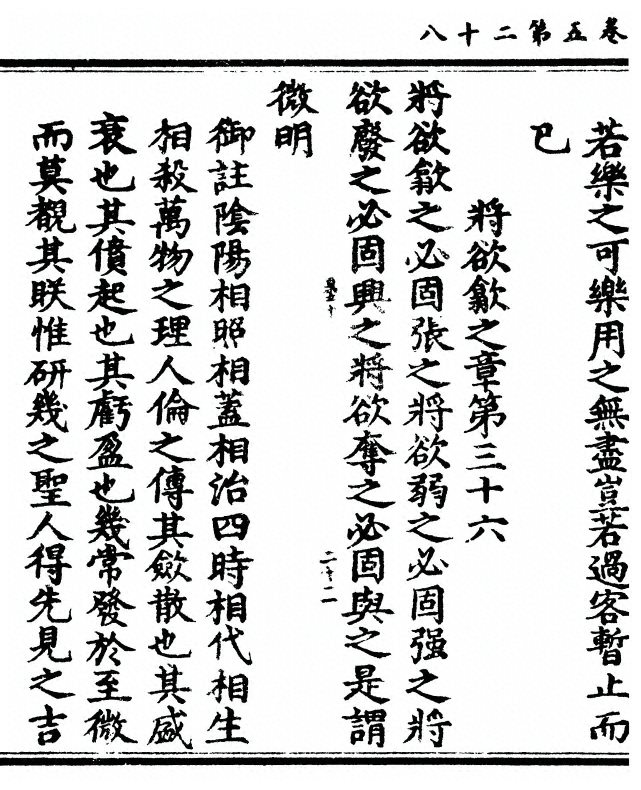 卷五第二十八
若樂之可樂用之無盡豈若過客暫止而
已
將欲歙之章第三十六
將欲歙之必固張之將欲弱之必固强之將
欲廢之必固興之將欲奪之必固與之是謂
二十二
微明
御註陰陽相照相蓋相治四時相代相生
相殺萬物之理人倫之傳其斂散也其盛
衰也其僨起也其虧盈也幾常發於至微
而莫覩其眹惟研幾之聖人得先見之吉